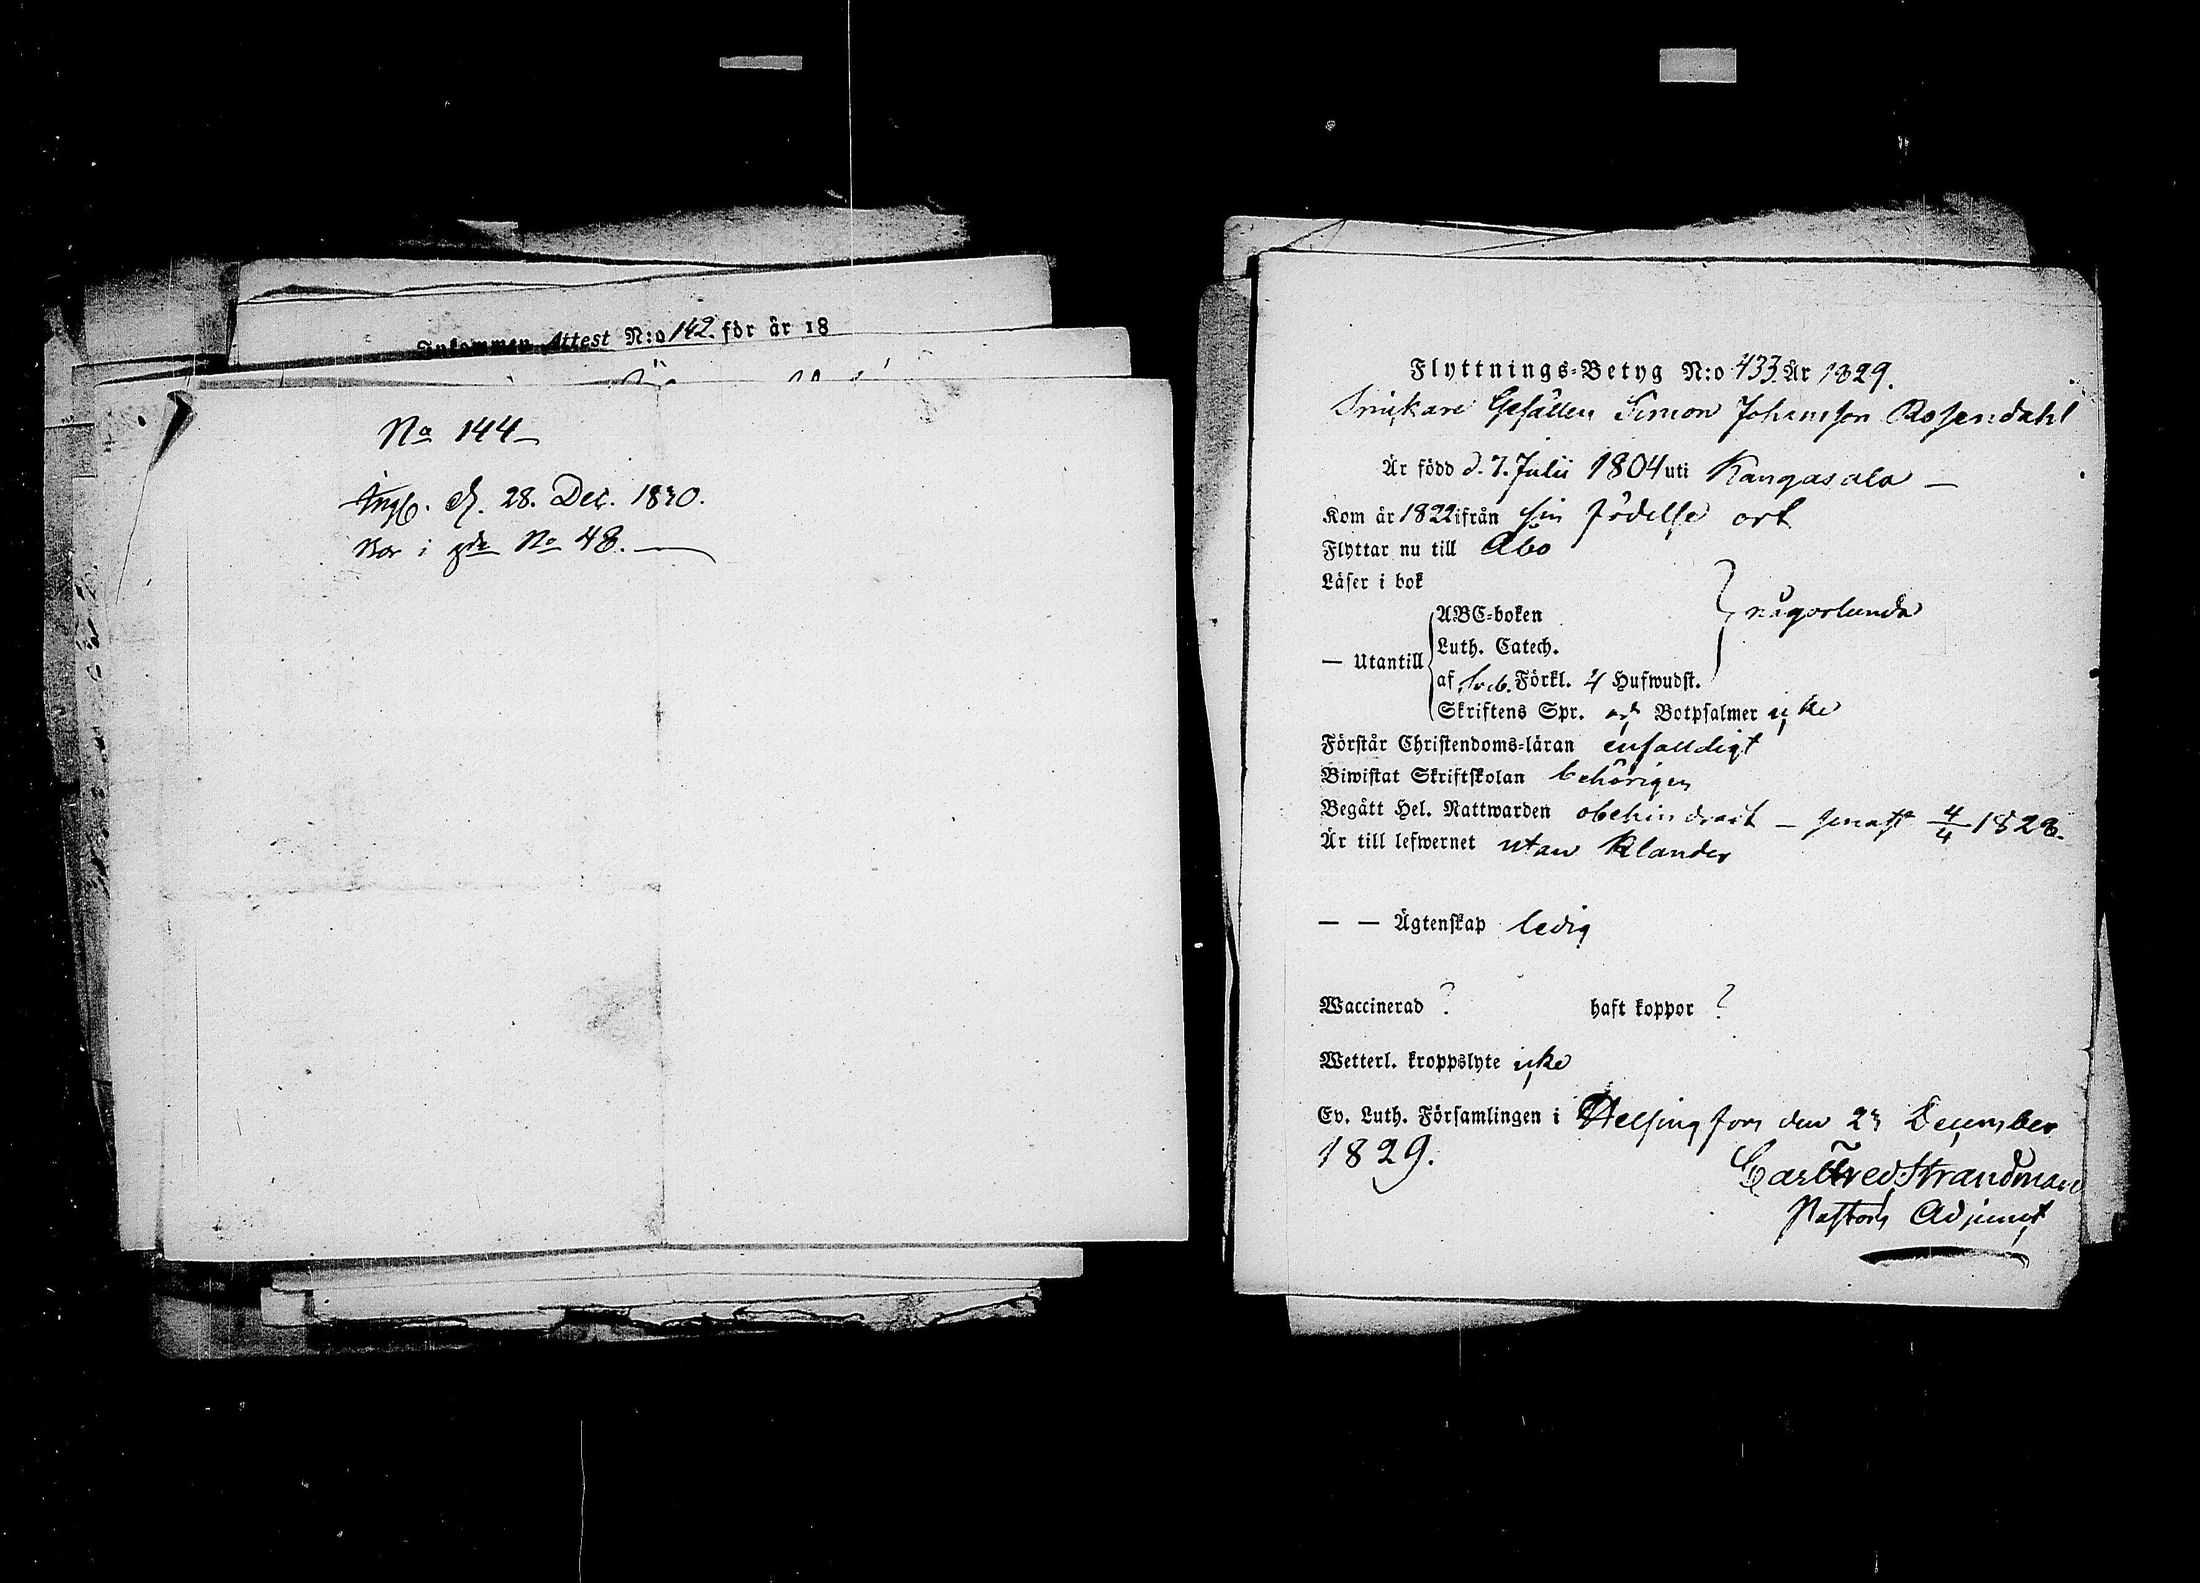 Inkommen Attest N:o 142. för år 18
No 144
Ingb. d. 28. Dec. 1830.
Bor i No 48.
Flyttnings-Betyg N:o 433. År 1829.
Snickare Gesällen Simon Johansson Rosendahl
Är född d. 7. Julii 1804 uti Kangasala
Kom år 1822 ifrån sin födelse ort
Flyttar nu till Åbo
Läser i bok
ABC-boken
någorlunda
Luth. Catech.
— Utantill
af Sveb. Förkl. 4 Hufwudst.
Skriftens Spr. och Botpsalmer icke
Förstår Christendoms-läran enfalldigt
Biwistat Skriftskolan behörigen
Begått Hel. Nattwarden obehindradt — senast 4/4 1828.
Är till lefwernet utan klander
— — Ägtenskap ledig
Waccinerad ? haft koppor ?
Wetterl. kroppslyte icke
Ev. Luth. Församlingen i Helsingfors den 23 December
1829.
Carl Fred Strandman
Pastors Adjunct